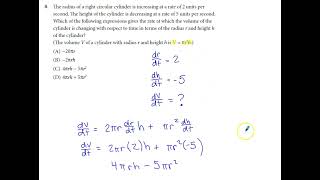 8. The radius of a right circular cylinder is increasing at a rate of 2 units per
second. The height of the cylinder is decreasing at a rate of 5 units per second.
Which of the following expressions gives the rate at which the volume of the
cylinder is changing with respect to time in terms of the radius r and height h
of the cylinder?
(The volume V of a cylinder with radius r and height h is V = πr²h.)
(A) −20πr
(B) −2πrh
(C) 4πrh − 5πr²
(D) 4πrh + 5πr²
dr/dt = 2
dh/dt = -5
dV/dt = ?
dV/dt = 2πr dr/dt h + πr² dh/dt
dV/dt = 2πr(2)h + πr²(-5)
4πrh − 5πr²